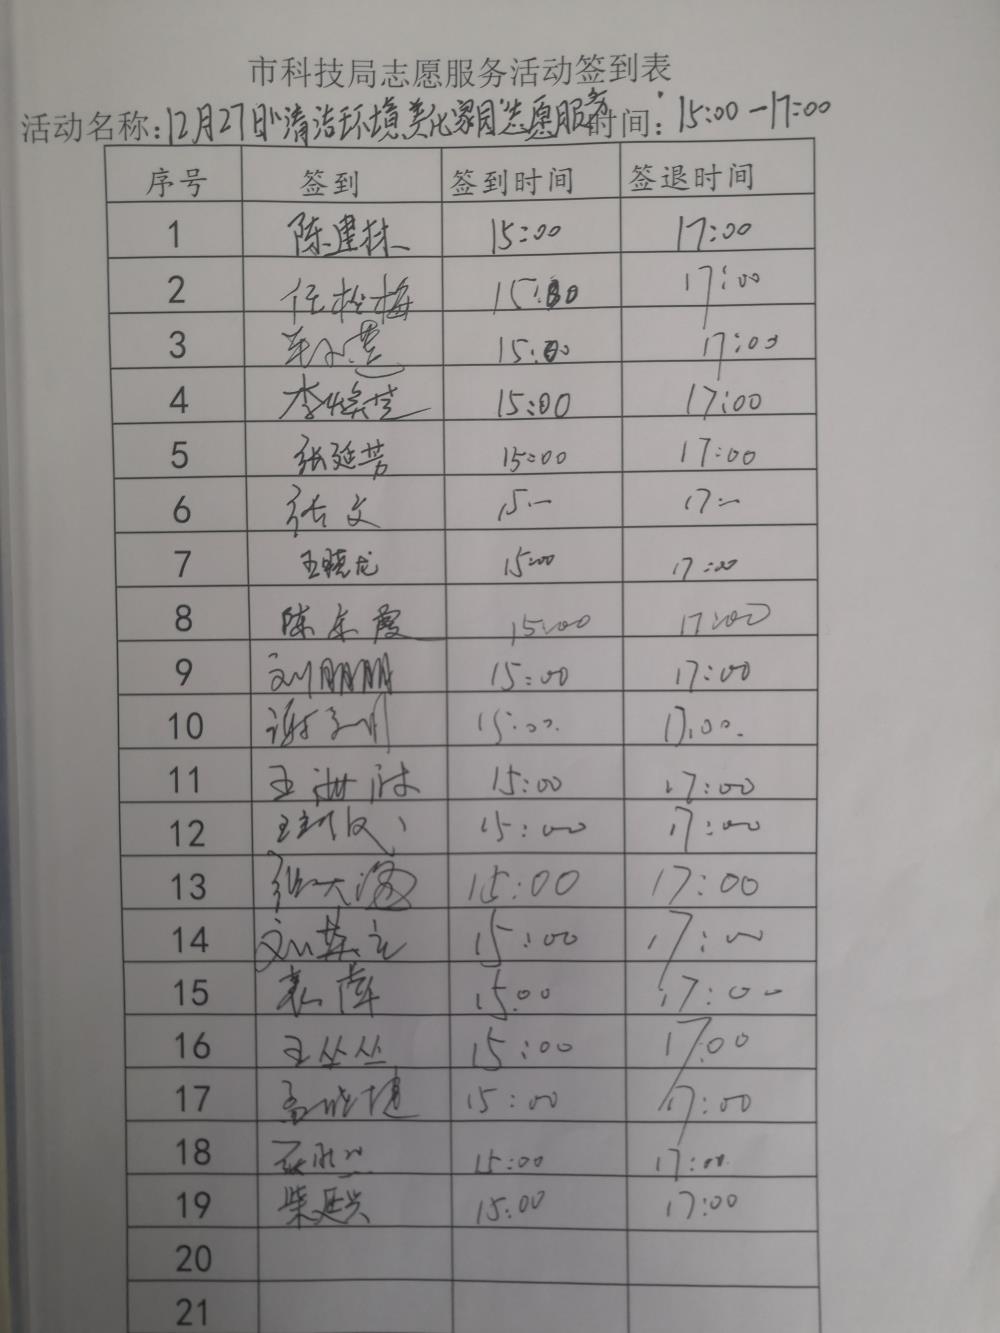 市科技局志愿服务活动签到表
活动名称:12月27日"清洁环境美化家园"志愿服务 时间:15:00-17:00
序号 签到 签到时间 签退时间
1 陈建林 15:00 17:00
2 任松梅 15:00 17:00
3 15:00 17:00
4 李焕芝 15:00 17:00
5 张延芳 15:00 17:00
6 张文 15:— 17:—
7 王晓龙 15:00 17:00
8 陈东霞 15:00 17:00
9 刘朋朋 15:00 17:00
10 谢子川 15:00 17:00
11 王洲 15:00 17:00
12 15:00 17:00
13 张大海 15:00 17:00
14 刘 15:00 17:00
15 袁萍 15:00 17:00
16 王丛丛 15:00 17:00
17 高晓健 15:00 17:00
18 15:00 17:00
19 柴廷兴 15:00 17:00
20
21